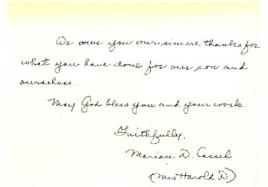 We owe you our sincere thanks for
what you have done for our son and
ourselves.
May God bless you and your work.
Faithfully,
Marian D. Cassel
(Mrs Harold D)